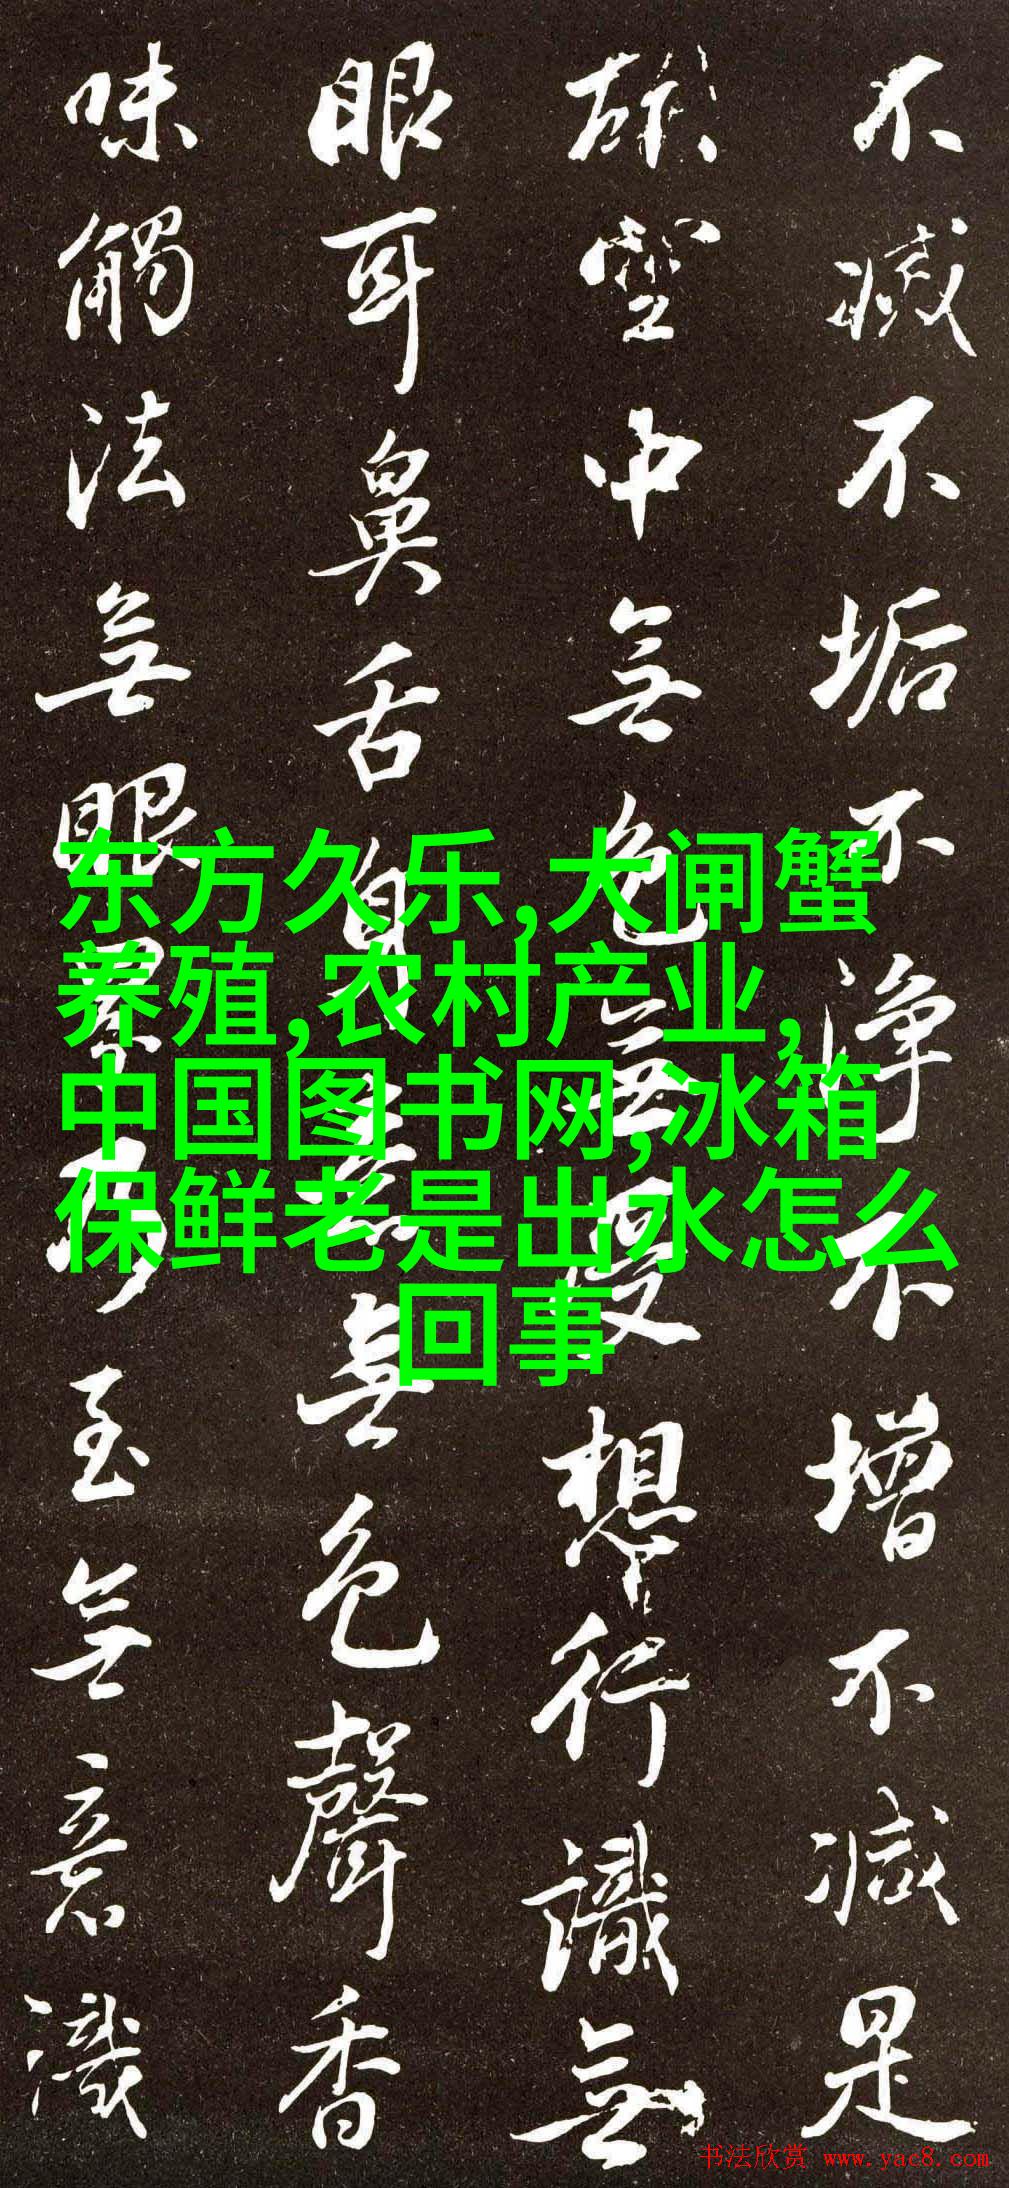 不滅不垢不淨不增不減是
故空中無色無受想行識無
眼耳鼻舌身意無色聲香
味觸法無眼界乃至無意識
东方久乐,大闸蟹
养殖,农村产业,
中国图书网,冰箱
保鲜老是出水怎么
回事
书法欣赏 www.yac8.com